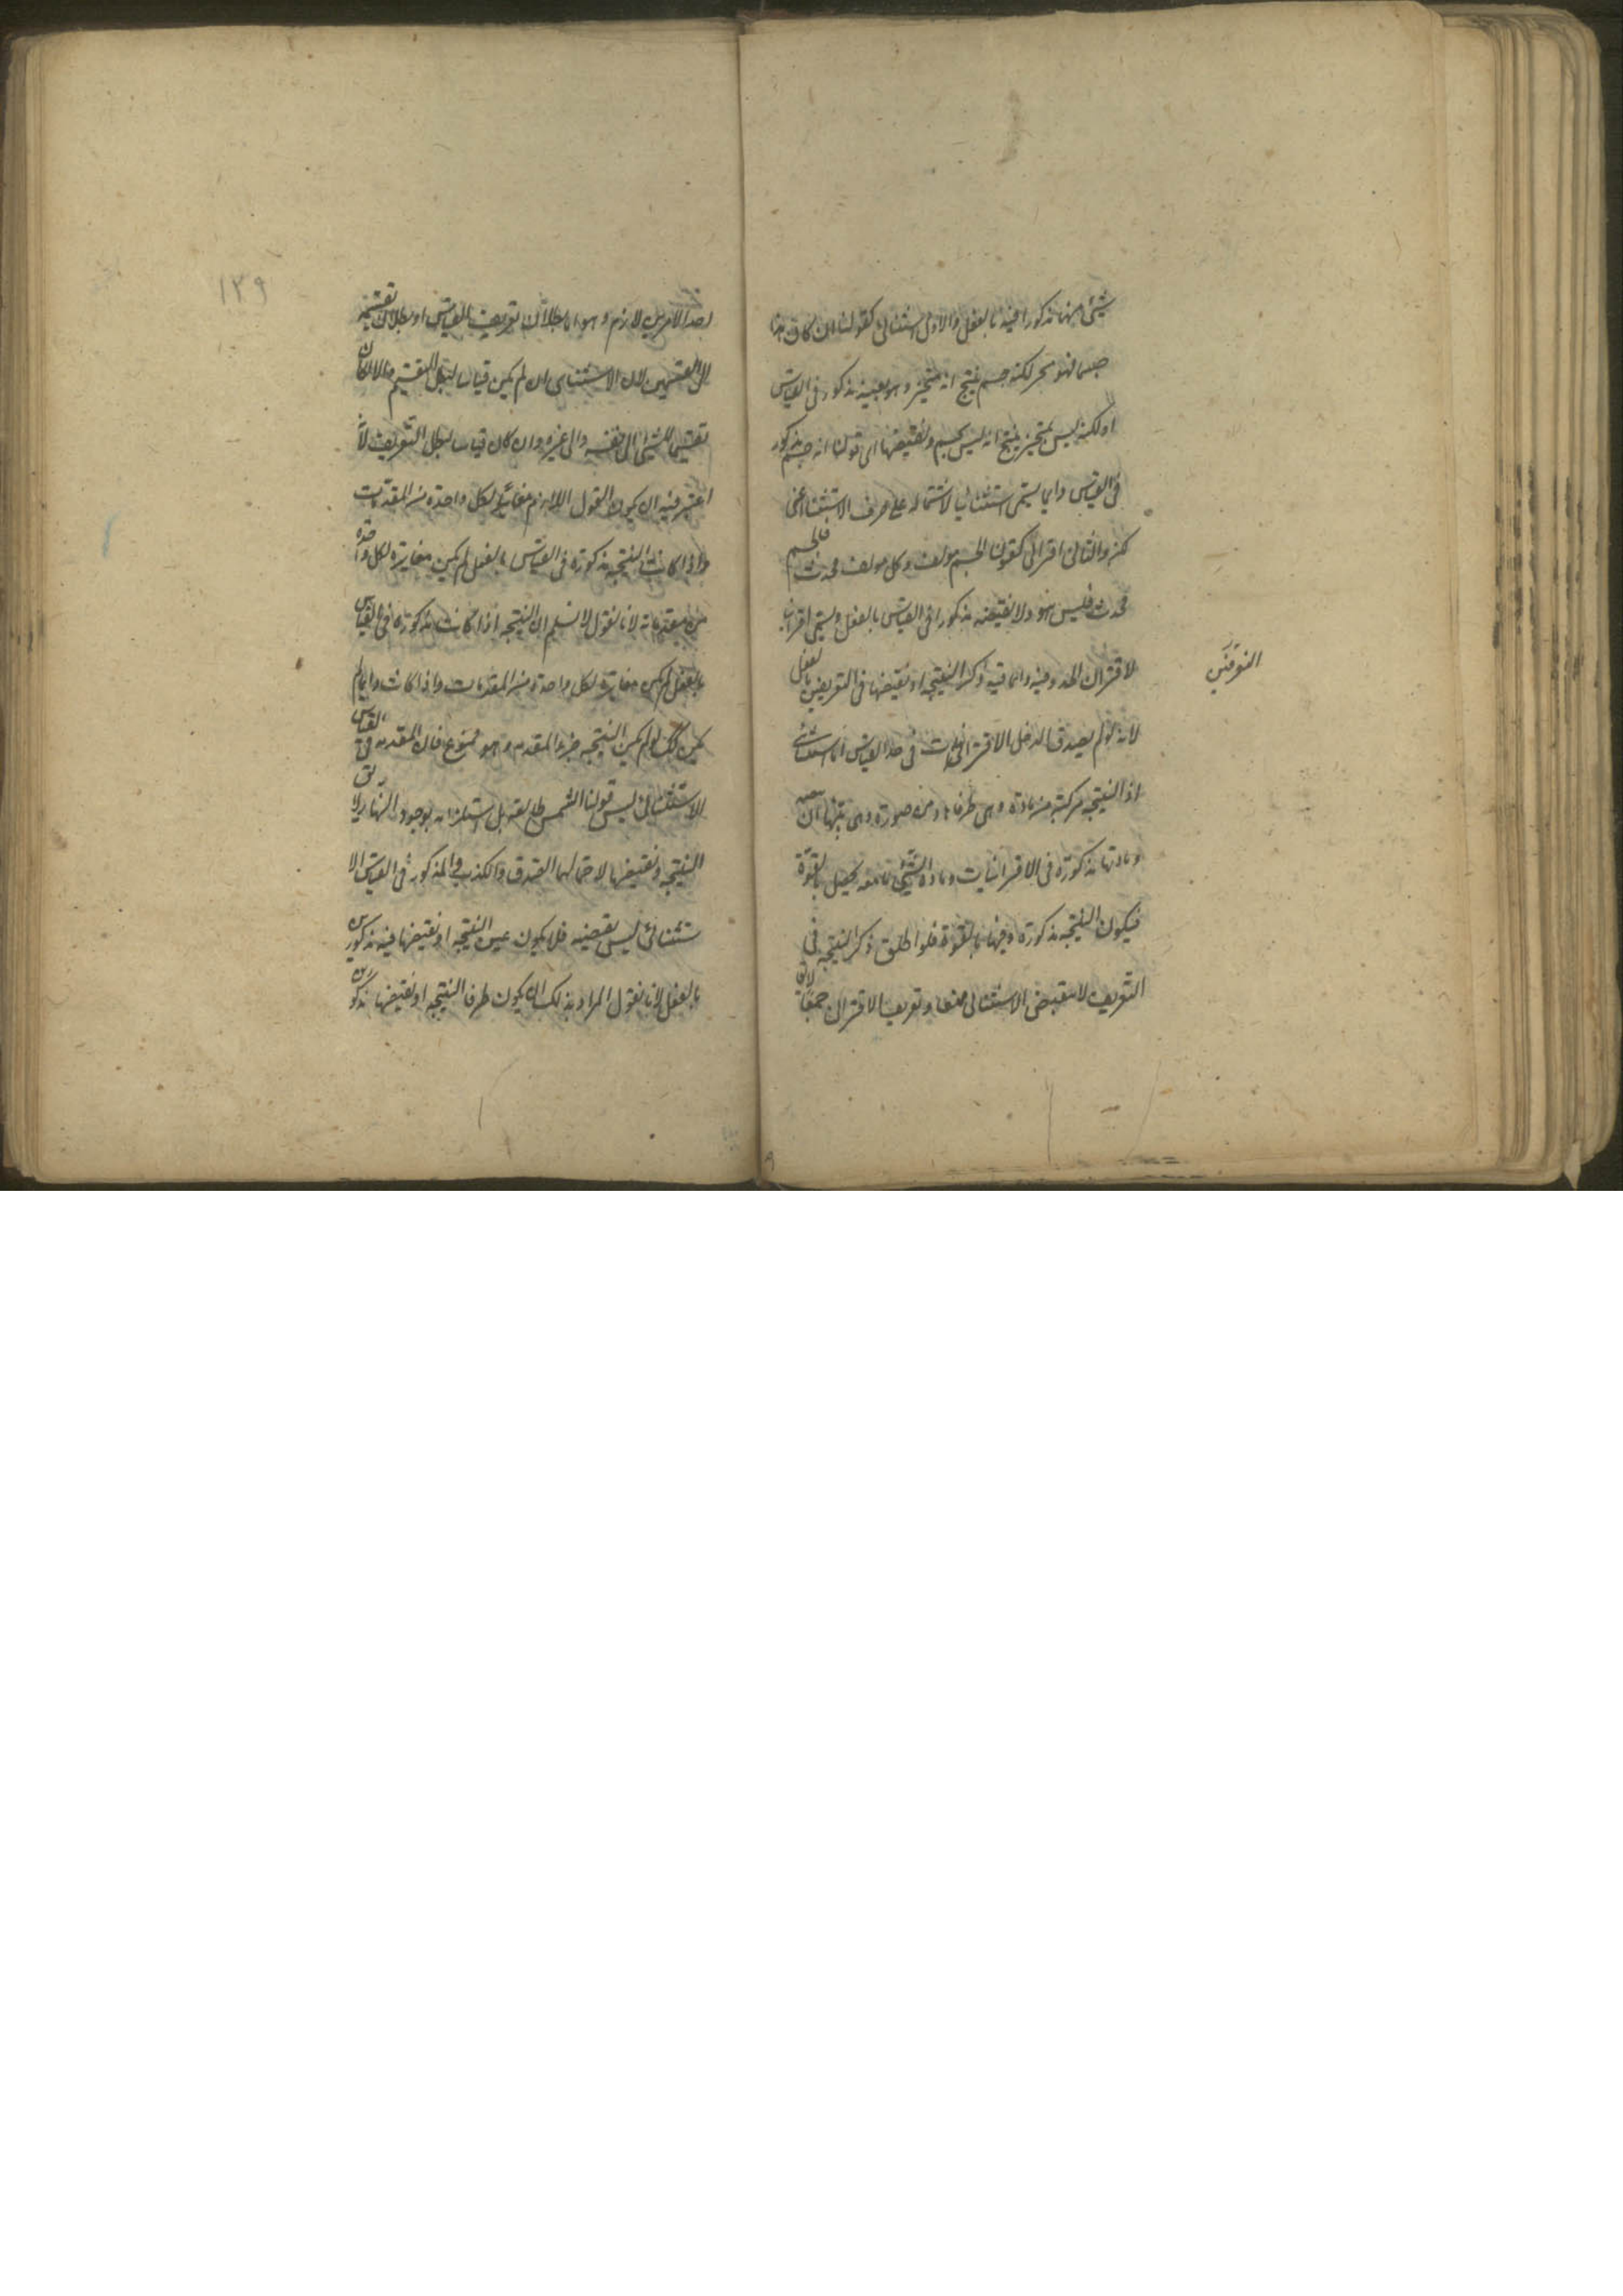 شئ منهما مذكورا فيه بالفعل والاول استثنائى كقولنا ان كان هذا
جسما فهو متحيز لكنه جسم ينتج انه متحيز وهو بعينه مذكور فى القياس
او لكنه ليس بمتحيز ينتج انه ليس بجسم ونقيضها اى قولنا انه جسم مذكور
فى القياس وانما يسمى استثنائيا لاشتماله على حرف الاستثناء اعنى
لكن والثانى اقترانى كقولنا الجسم مولف وكل مولف محدث فالجسم
محدث فليس هو ولا نقيضه مذكورا فى القياس بالفعل ويسمى اقترانيا
لاقتران الحدود فيه وانما قيد ذكر النتيجه او نقيضها فى التعريفين بالفعل
لانه لو لم يقيد لدخل الاقترانيات فى حد القياس الاستثنائى
اذ النتيجه مركبة من مادة وهى طرفاها ومن صورة وهى
ومادتها مذكورة فى الاقترانيات ومادة الشئ ما معه يحصل بالقوة
فيكون النتيجه مذكورة فيها بالقوة فلو اطلق ذكر النتيجه فى
التعريف لانتقض الاستثنائى منعا وتعريف الاقترانى جمعا لايق
احد الامرين لازم وهو اما بطلان تعريف القياس او بطلان تقسيمه
الى القسمين لان الاستثنائى ان لم يكن قياسا لبطل التقسيم والا لكان
تقسيما للشئ الى نفسه والى غيره وان كان قياسا لبطل التعريف لانه
اعتبر فيه ان يكون القول اللازم مغايرا لكل واحدة من المقدمات
واذا كانت النتيجه مذكورة فى القياس بالفعل لم يكن مغايرة لكل واحدة
من مقدماته لانا نقول لا نسلم ان النتيجه اذا كانت مذكورة فى القياس
بالفعل لم يكن مغايرة لكل واحدة من المقدمات واذا كانت وانما لم
يكن كك لو لم يكن النتيجه جزء المقدمه وهو ممنوع فان المقدمه فى القياس
الاستثنائى ليس قولنا الشمس طالعة بل استلزامه لوجود النهار لايق
النتيجه ونقيضها لاحتمالهما الصدق والكذب والمذكور فى القياس الا
ستثنائى ليس بقضيه فلا يكون عين النتيجه او نقيضها فيه مذكورين
بالفعل لانا نقول المراد بذلك ان يكون طرفا النتيجه او نقيضها مذكورين
١٣٩